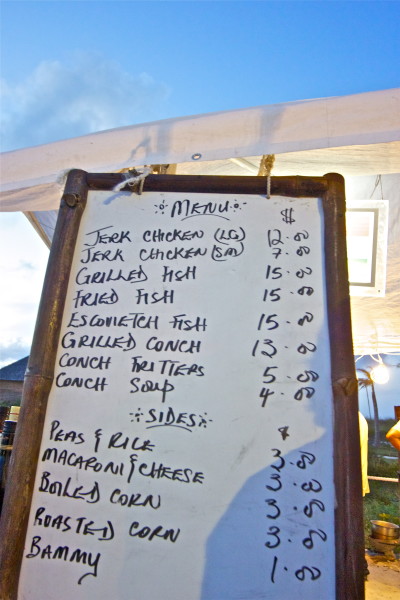 MENU
$
JERK CHICKEN (LG) 12.00
JERK CHICKEN (SM) 7.00
GRILLED FISH 15.00
FRIED FISH 15.00
ESCOVIETCH FISH 15.00
GRILLED CONCH 13.00
CONCH FRITTERS 5.00
CONCH SOUP 4.00
SIDES $
PEAS & RICE 3.00
MACARONI & CHEESE 3.00
BOILED CORN 3.00
ROASTED CORN 3.00
BAMMY 1.00